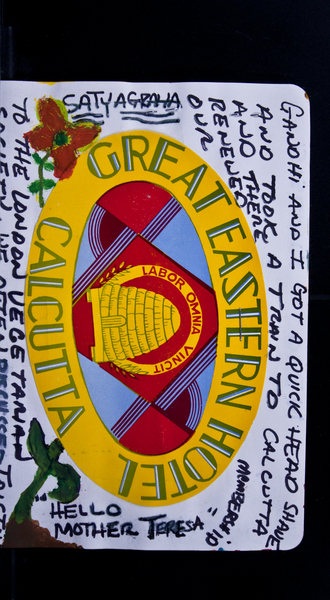 GANDHI AND I GOT A QUICK HEAD SHAVE
AND TOOK A TRAIN TO CALCUTTA
AND THERE
RENEWED
OUR
TO THE LONDON VEGETARIAN
SOCIETY. WE OFTEN DISCUSSED
SATYAGRAHA
GREAT EASTERN HOTEL
CALCUTTA
LABOR OMNIA VINCIT
"HELLO
MOTHER TERESA"